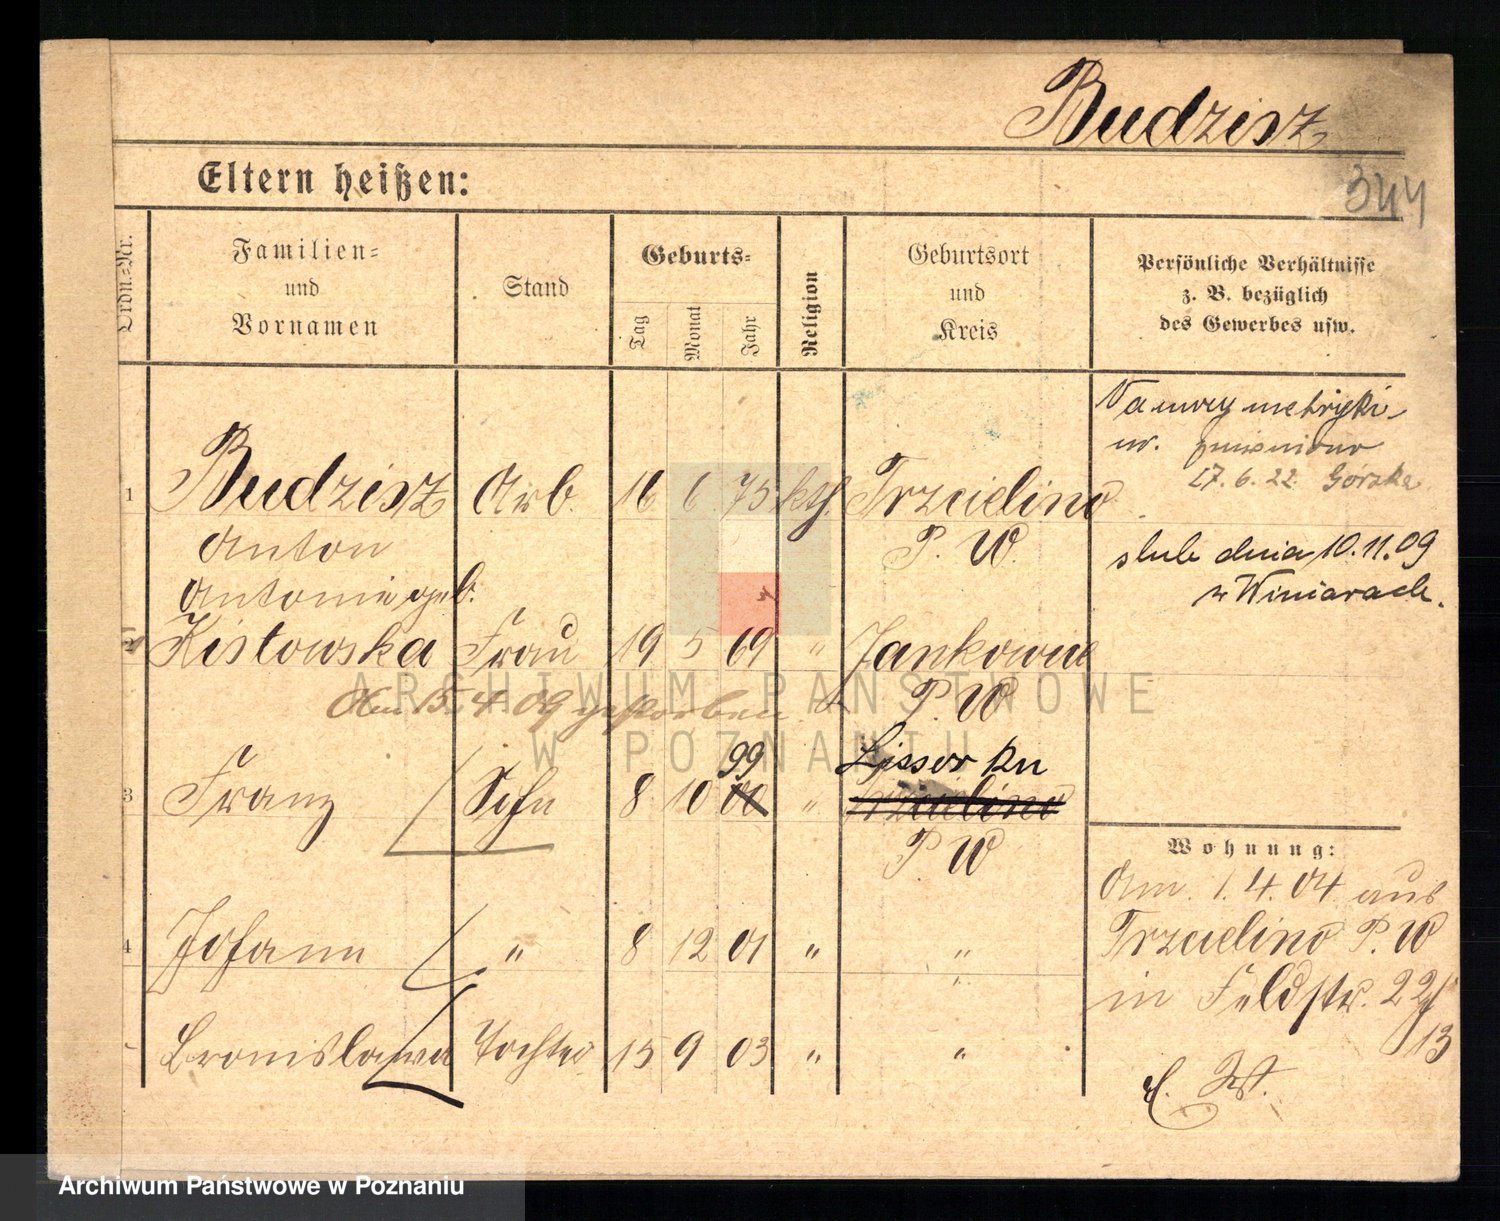 Budzisz
344
Eltern heißen:
Ordn.-Nr.
Familien-
und
Vornamen
Stand
Geburts-
Tag
Monat
Jahr
Religion
Geburtsort
und
Kreis
Persönliche Verhältnisse
z. B. bezüglich
des Gewerbes usw.
1 Budzisz Arb. 16 6 75 kth. Trzcielino
Anton P. W.
Antonie geb.
2 Kistowska Frau 19 5 69 " Jankowice
P. W
Am 15.4.09 gestorben.
99 Lissowken
3 Franz Sohn 8 10 00 " Trzcielino
P W
4 Johann " 8 12 01 " "
Bronislawa Tochter 15 9 03 " "
metryki
nr. zmieniono
17.6.22. Górska
slub dnia 10.11.09
w Winiarach.
Wohnung:
Am 1.4.04 aus
Trzcielino P. W
in Feldstr. 22
13
ARCHIWUM PAŃSTWOWE
W POZNANIU
Archiwum Państwowe w Poznaniu